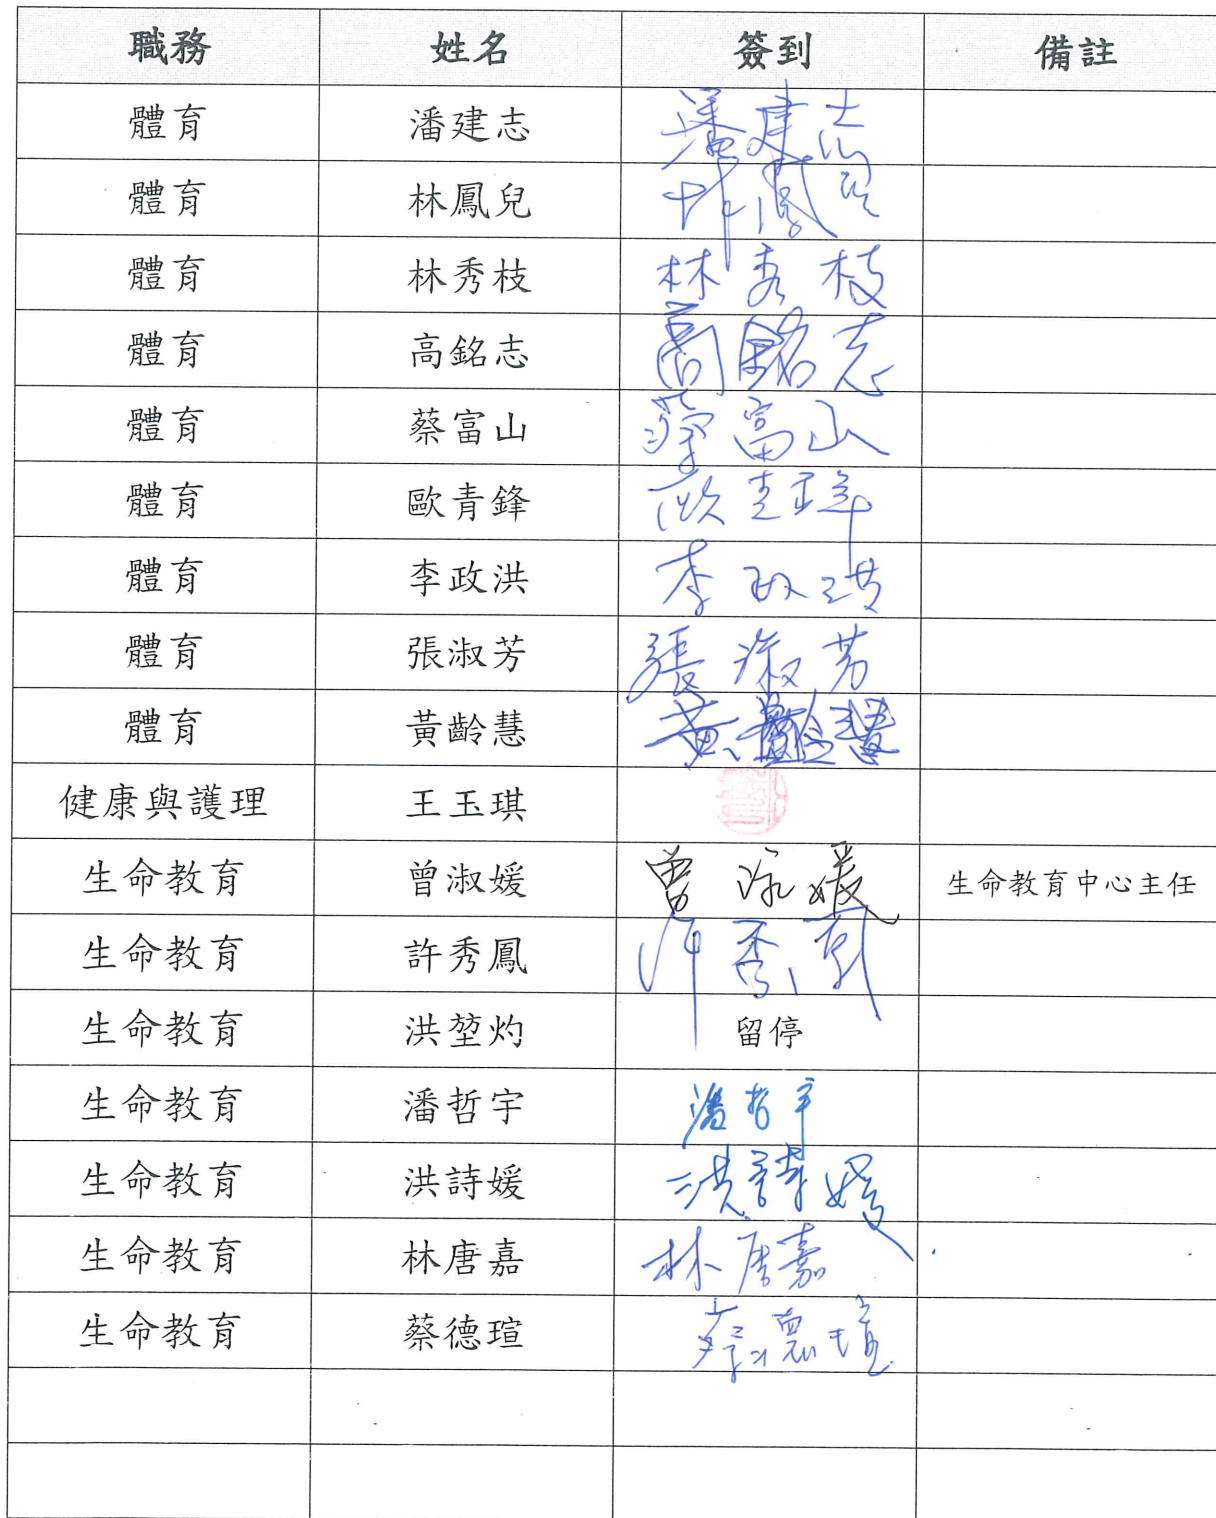 職務 姓名 簽到 備註
體育 潘建志 潘建志
體育 林鳳兒 林鳳兒
體育 林秀枝 林秀枝
體育 高銘志 高銘志
體育 蔡富山 蔡富山
體育 歐青鋒 歐青鋒
體育 李政洪 李政洪
體育 張淑芳 張淑芳
體育 黃齡慧 黃齡慧
健康與護理 王玉琪
生命教育 曾淑媛 曾淑媛 生命教育中心主任
生命教育 許秀鳳 許秀鳳
生命教育 洪堃灼 留停
生命教育 潘哲宇 潘哲宇
生命教育 洪詩媛 洪詩媛
生命教育 林唐嘉 林唐嘉
生命教育 蔡德瑄 蔡德瑄